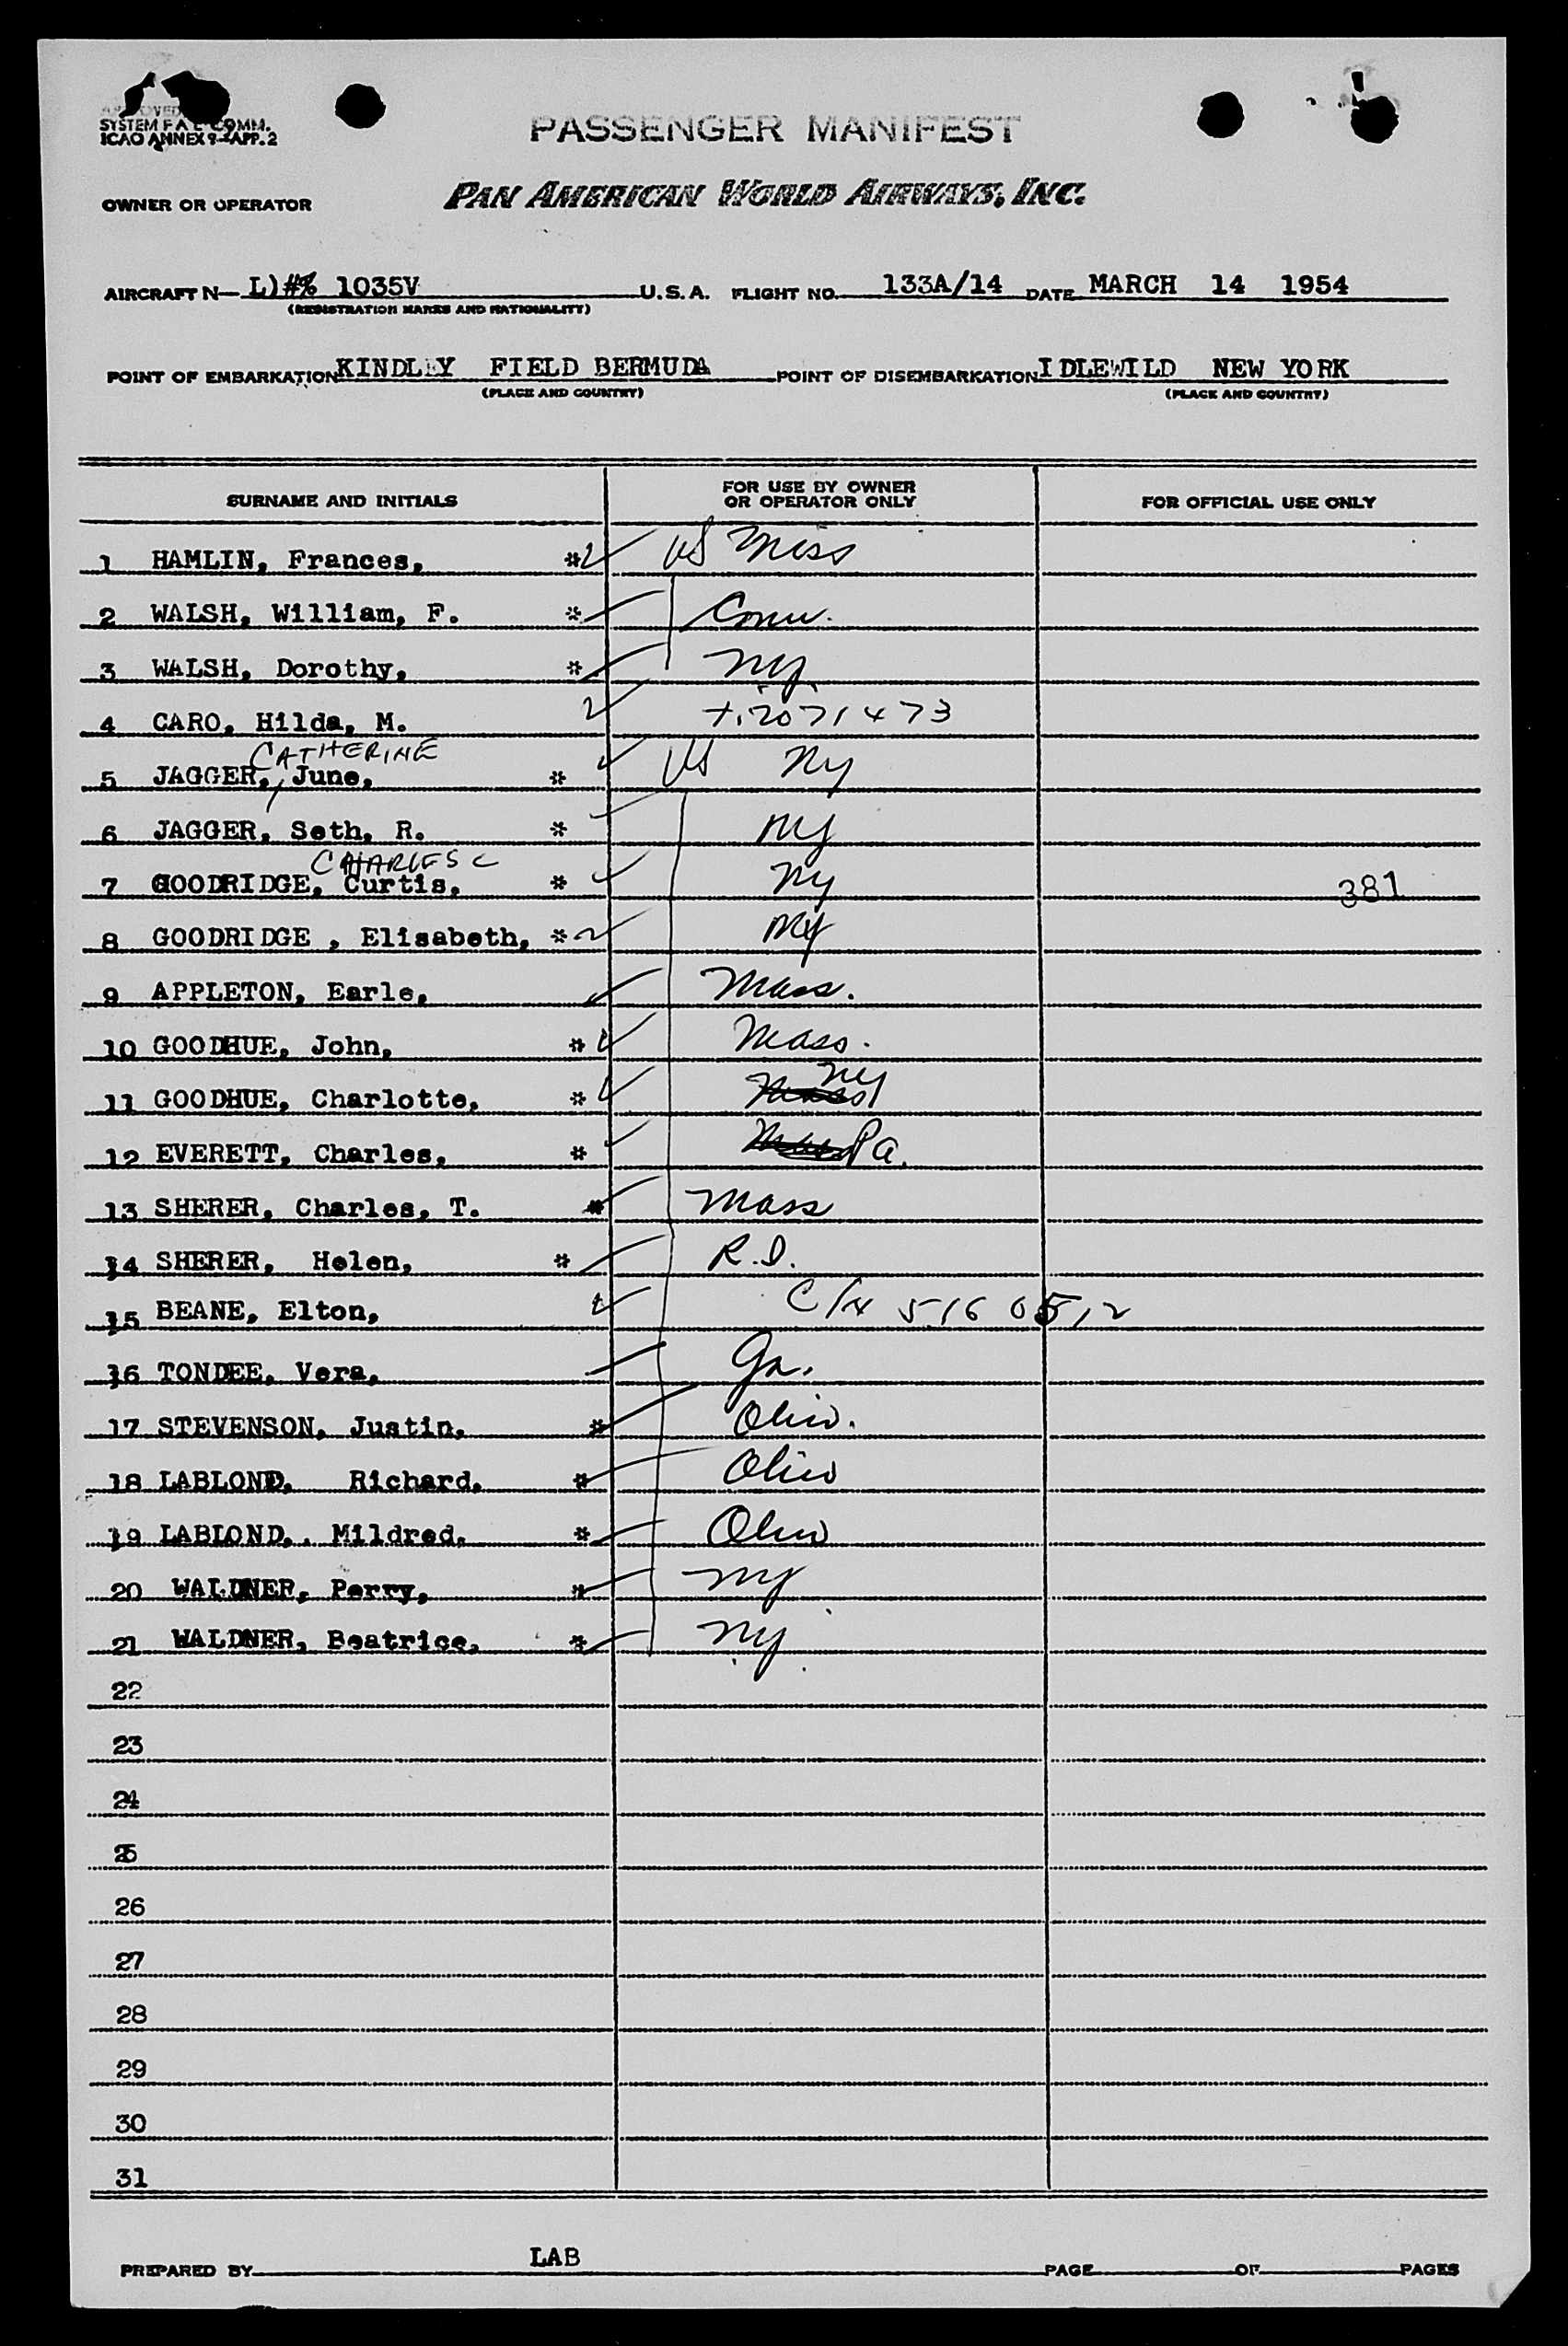 SYSTEM F A L COMM.
ICAO ANNEX 9-APP.2
PASSENGER MANIFEST
OWNER OR OPERATOR PAN AMERICAN WORLD AIRWAYS, INC.
AIRCRAFT N— L)#% 1035V U.S.A. FLIGHT NO. 133A/14 DATE MARCH 14 1954
(REGISTRATION MARKS AND NATIONALITY)
POINT OF EMBARKATION KINDLEY FIELD BERMUDA POINT OF DISEMBARKATION IDLEWILD NEW YORK
(PLACE AND COUNTRY) (PLACE AND COUNTRY)
SURNAME AND INITIALS FOR USE BY OWNER OR OPERATOR ONLY FOR OFFICIAL USE ONLY
1 HAMLIN, Frances, * US Miss
2 WALSH, William, F. * Conn.
3 WALSH, Dorothy, * NY
4 CARO, Hilda, M.
CATHERINE
5 JAGGER, June, * US NY
6 JAGGER, Seth, R. * NY
CHARLES C
7 GOODRIDGE, Curtis, * NY 381
8 GOODRIDGE , Elisabeth, * NY
9 APPLETON, Earle, Mass.
10 GOODHUE, John, * Mass.
11 GOODHUE, Charlotte, * Mass NY
12 EVERETT, Charles, * Pa.
13 SHERER, Charles, T. * Mass
14 SHERER, Helen, * R.I.
15 BEANE, Elton,
16 TONDEE, Vera, Ga.
17 STEVENSON, Justin, * Ohio.
18 LABLOND, Richard, * Ohio
19 LABLOND,. Mildred, * Ohio
20 WALDNER, Perry, * NY
21 WALDNER, Beatrice, * NY
22
23
24
25
26
27
28
29
30
31
PREPARED BY LAB PAGE OF PAGES